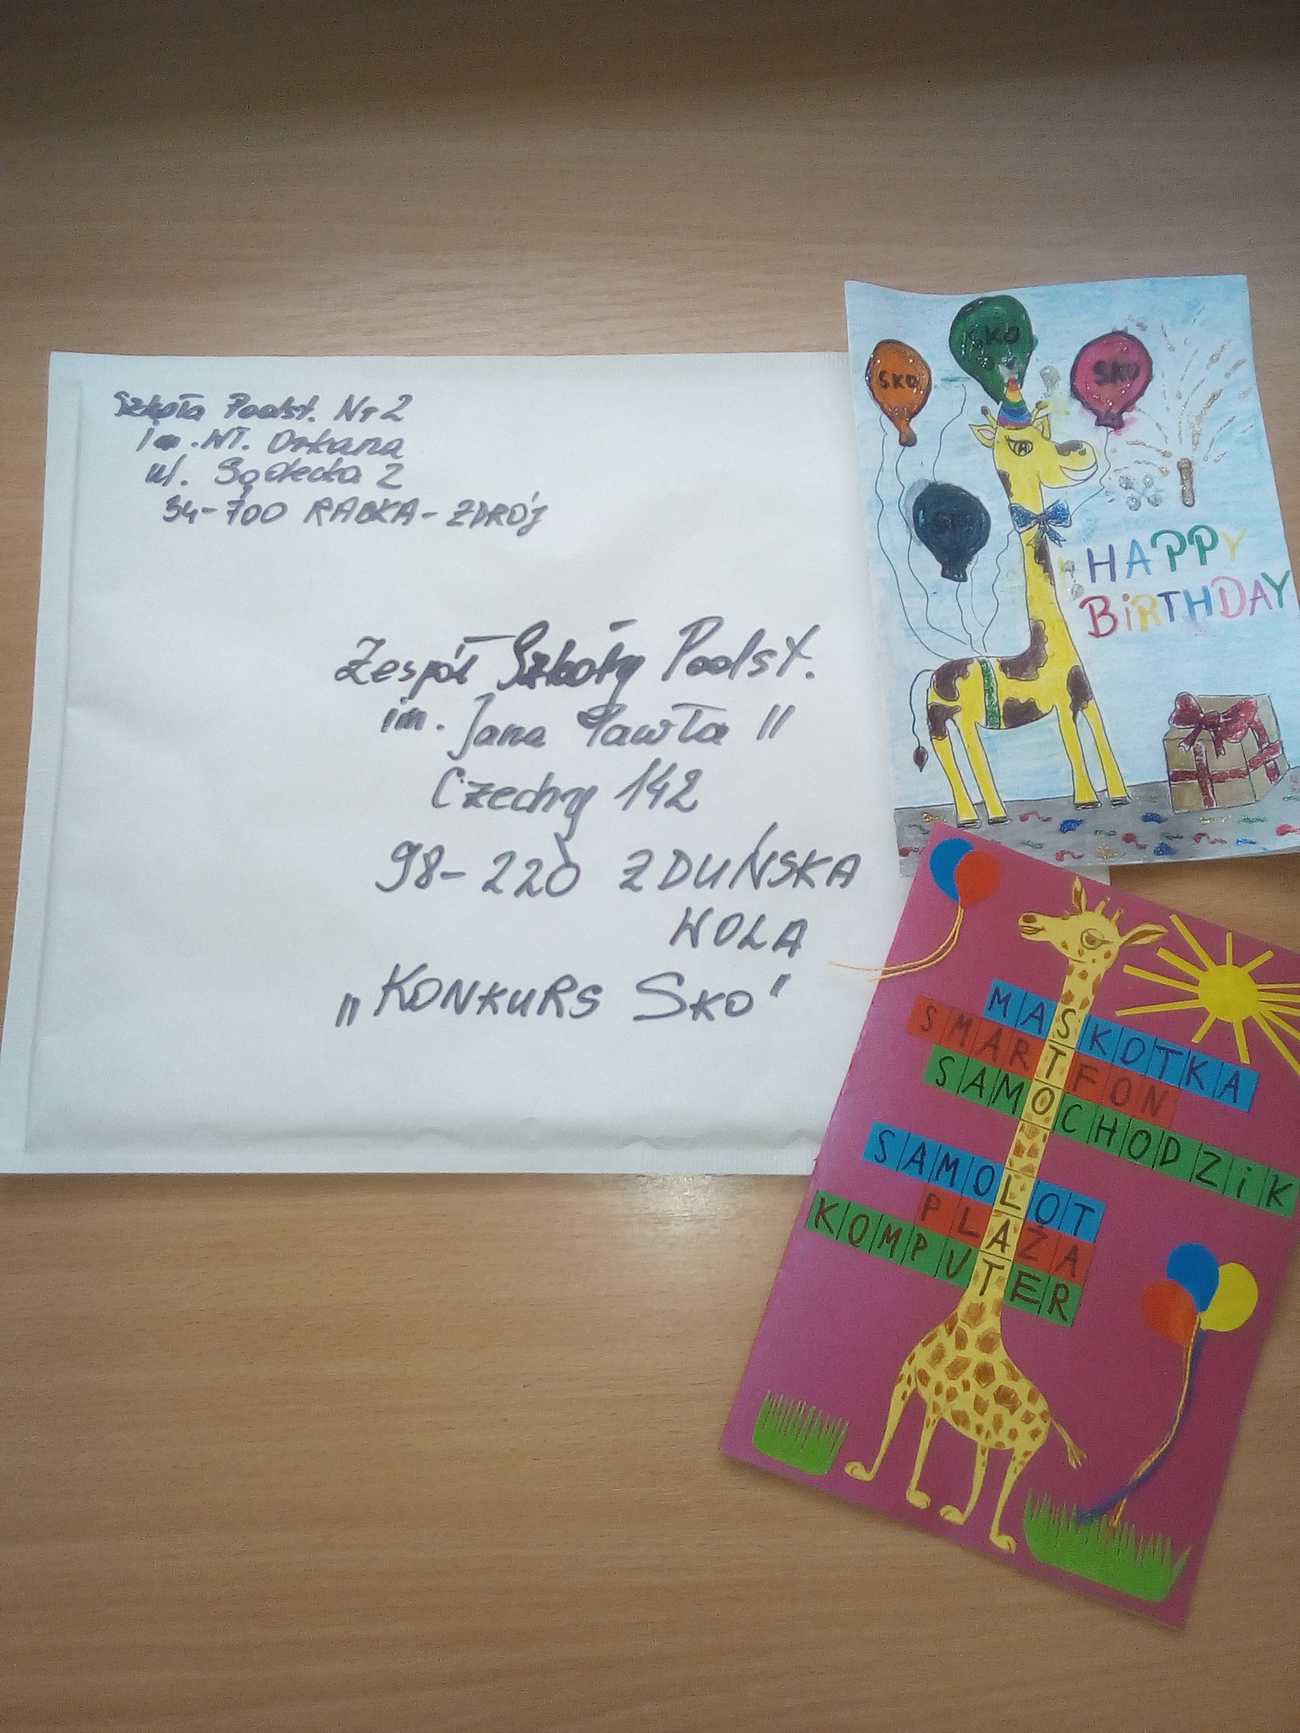 Szkoła Podst. Nr 2
Im. Wł. Orkana
ul. Sądecka 2
34-700 RABKA-ZDRÓJ
Zespół Szkoły Podst.
im. Jana Pawła II
Czechy 142
98-220 ZDUŃSKA
WOLA
„KONKURS SKO"
SKO
SKO
SKO
HAPPY
BiRTHDAY
MASKOTKA
SMARTFON
SAMOCHODZiK
SAMOLOT
PLAŻA
KOMPUTER